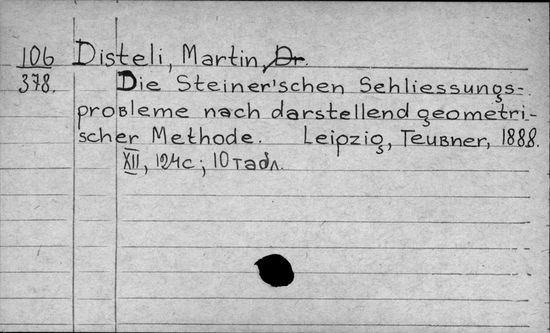 106 Disteli, Martin, Dr.
378. Die Steiner'schen Schliessungs-
probleme nach darstellend geometri-
scher Methode. Leipzig, Teubner, 1888.
XII, 124c; 10 табл.